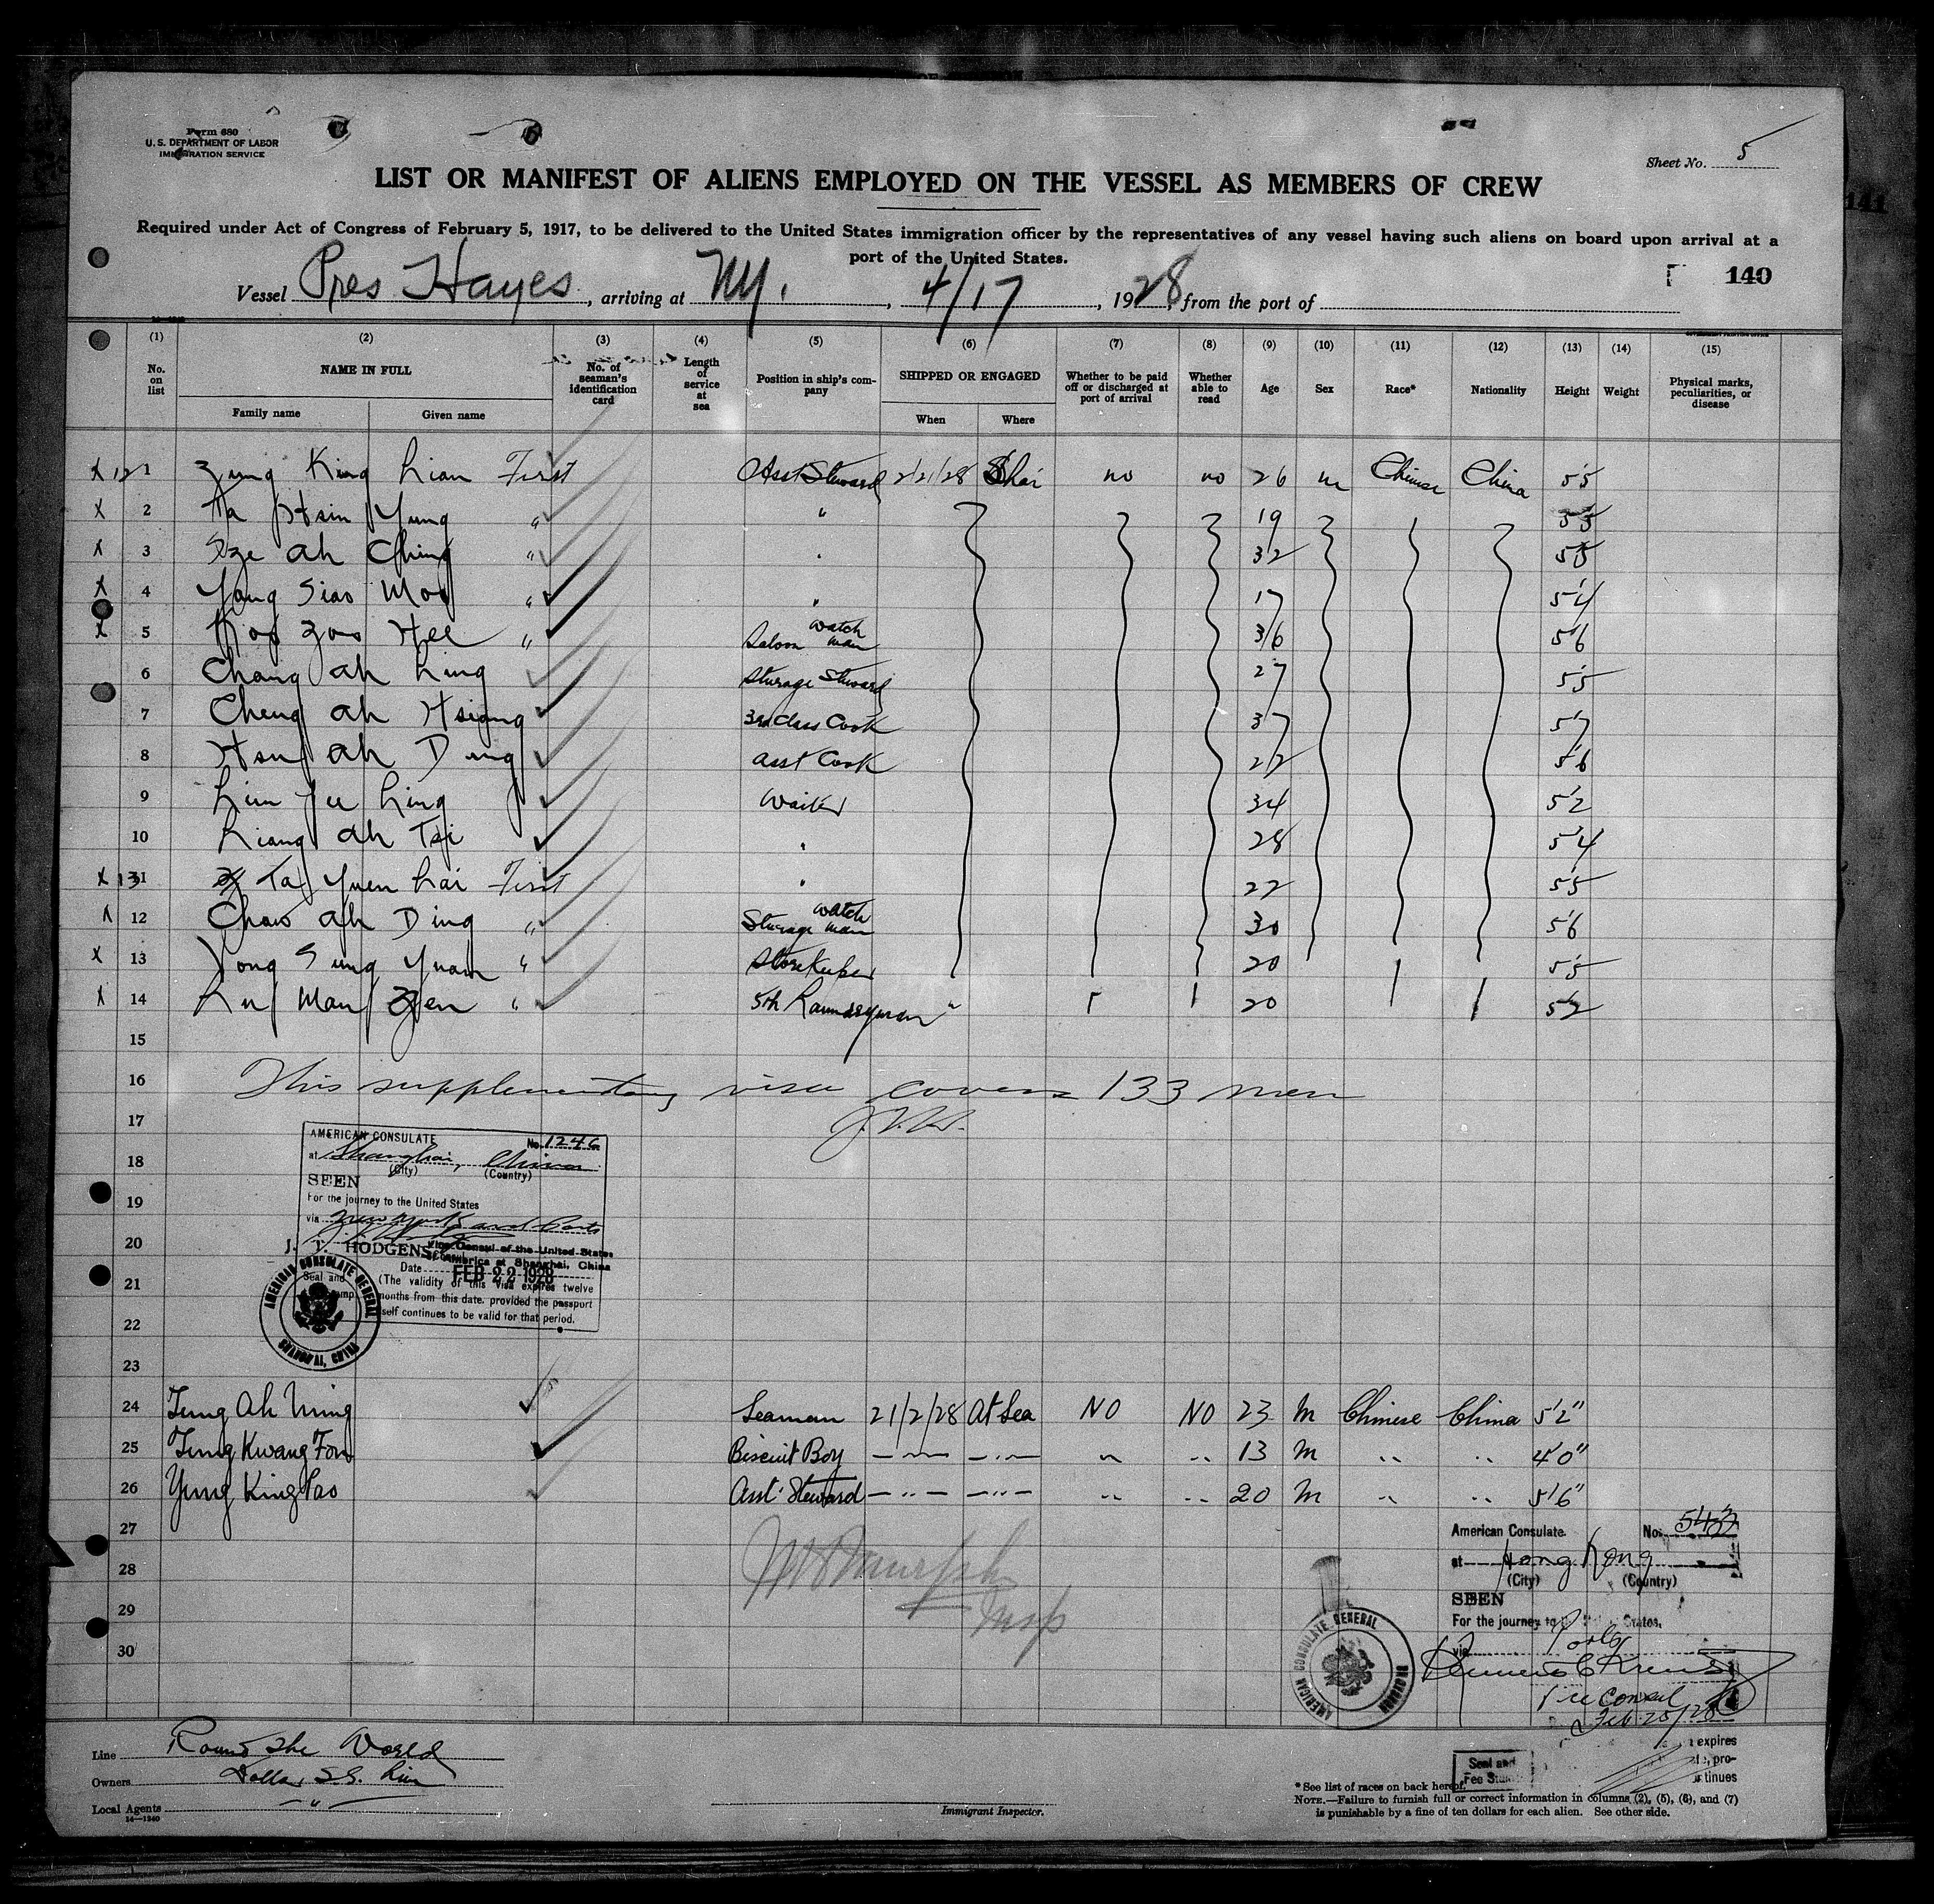 Form 680
U. S. DEPARTMENT OF LABOR
IMMIGRATION SERVICE
Sheet No. 5
LIST OR MANIFEST OF ALIENS EMPLOYED ON THE VESSEL AS MEMBERS OF CREW
Required under Act of Congress of February 5, 1917, to be delivered to the United States immigration officer by the representatives of any vessel having such aliens on board upon arrival at a
port of the United States.
140
141
Vessel Pres Hayes, arriving at NY., 4/17, 1928, from the port of
(1) (2) (3) (4) (5) (6) (7) (8) (9) (10) (11) (12) (13) (14) (15)
No. on list NAME IN FULL No. of seaman's identification card Length of service at sea Position in ship's company SHIPPED OR ENGAGED Whether to be paid off or discharged at port of arrival Whether able to read Age Sex Race* Nationality Height Weight Physical marks, peculiarities, or disease
Family name Given name When Where
X 12 1 Zung King Lian First Asst Steward 2/21/28 Shai no no 26 m Chinese China 5'5
X 2 Ta Hsin Yung " " 19 5'5
X 3 Sze Ah Ching " 32 5'5
X 4 Yang Siao Mow " " 17 5'4
X 5 Koo Zoo Hee " Saloon watch man 36 5'6
6 Chang Ah Ling Sturage Steward 27 5'5
7 Cheng Ah Hsiang 3rd Class Cook 37 5'7
8 Hsu Ah Ding Asst Cook 22 5'6
9 Lim Yu Ling Waiter 34 5'2
10 Liang Ah Tsi " 28 5'4
X 13 11 Ta Yuen Lai First " 22 5'5
X 12 Chow Ah Ding " Sturage watch man 30 5'6
X 13 Yong Sung Yuan " StoreKeeper 20 5'5
X 14 Lu Man Zen " 5th Laundryman " 20 5'2
15
16 This supplementary visa covers 133 men
17 J.V.H.
AMERICAN CONSULATE No. 1246
at Shanghai, China
(City) (Country)
18
SEEN
19 For the journey to the United States
via New York and Ports
20 J. V. HODGENS Vice Consul of the United States
of America at Shanghai, China
Date FEB 22 1928
21 Seal and (The validity of this visa expires twelve
months from this date, provided the passport
self continues to be valid for that period.
AMERICAN CONSULATE GENERAL
SHANGHAI, CHINA
22
23
24 Tung Ah Ming Seaman 21/2/28 At Sea NO NO 23 M Chinese China 5'2"
25 Tung Kwang Fon Biscuit Boy 13 M 4'0"
26 Yung King Pao Asst. Steward 20 M 5'6"
27
28
29 Insp
30
American Consulate. No. 543
at Hong Kong
(City) (Country)
SEEN
For the journey to States.
via Ports
Vice Consul
Feb 25/28
AMERICAN CONSULATE GENERAL
expires
pro-
tinues
Seal and
Fee Stamp
Line Round The World
Owners Dollar S.S. Line
Local Agents "
14—1240
Immigrant Inspector.
*See list of races on back hereof.
NOTE.—Failure to furnish full or correct information in columns (2), (5), (6), and (7)
is punishable by a fine of ten dollars for each alien. See other side.